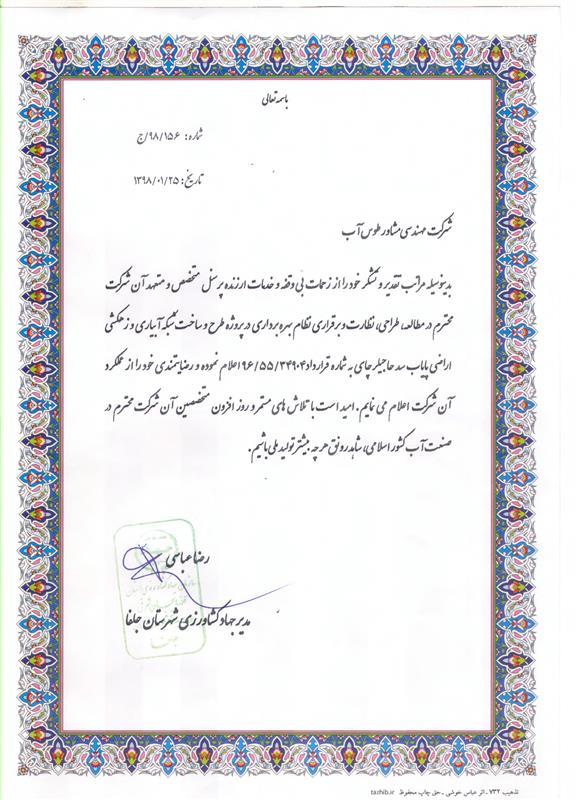 باسمه تعالی
شماره: ۹۸/۱۵۶/ج
تاریخ: ۱۳۹۸/۰۱/۲۵
شرکت مهندسی مشاور طوس آب
بدینوسیله مراتب تقدیر و تشکر خود را از زحمات بی وقفه و خدمات ارزنده پرسنل متخصص و متعهد آن شرکت
محترم در مطالعه، طراحی، نظارت و برقراری نظام بهره برداری در پروژه طرح و ساخت شبکه آبیاری و زهکشی
اراضی پایاب سد حاجیلرچای به شماره قرارداد ۹۶/۵۵/۳۴۹۰۴ اعلام نموده و رضایتمندی خود را از عملکرد
آن شرکت اعلام می نمایم. امید است با تلاش های مستمر و روز افزون متخصصین آن شرکت محترم در
صنعت آب کشور اسلامی، شاهد رونق هر چه بیشتر تولید ملی باشیم.
رضا عباسی
مدیر جهاد کشاورزی شهرستان جلفا
تذهیب ۷۳۲ - اثر عباس خوشی - حق چاپ محفوظ tazhib.ir